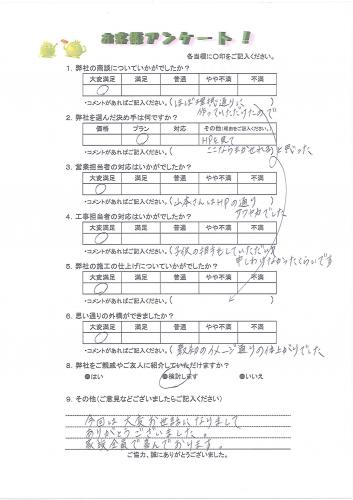 お客様アンケート！
各当欄に○印をご記入ください。
1. 弊社の商談についていかがでしたか？
大変満足 満足 普通 やや不満 不満
・コメントがあればご記入ください。(ほぼ理想通りに
作っていただけたので
2. 弊社を選んだ決め手は何ですか？
価格 プラン 対応 その他(理由をご記入ください。)
HPを見て
・コメントがあればご記入ください。( ここならまかせれると思った
3. 営業担当者の対応はいかがでしたか？
大変満足 満足 普通 やや不満 不満
・コメントがあればご記入ください。(山本さんはHPの通り
サワヤカでした
4. 工事担当者の対応はいかがでしたか？
大変満足 満足 普通 やや不満 不満
・コメントがあればご記入ください。(子供の相手もしていただいて
申しわけなかったくらいです
5. 弊社の施工の仕上げついていかがでしたか？
大変満足 満足 普通 やや不満 不満
・コメントがあればご記入ください。( )
6. 思い通りの外構ができましたか？
大変満足 満足 普通 やや不満 不満
・コメントがあればご記入ください。(最初のイメージ通りの仕上がりでした
8. 弊社をご親戚やご友人に紹介していただけますか？
●はい ●検討します ●いいえ
9. その他(ご意見などございましたらご記入ください。)
今回は大変お世話になりまして
ありがとうございました。
家族全員で喜んでおります。
ご協力、誠にありがとうございました。